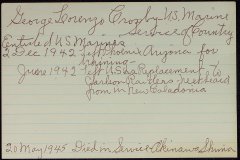 George Lorenzo Crosby U.S. Marine
Service of Country
Enlisted U.S. Marines
2 Dec 1942 Left Phoenix Arizona for
training
June 1942 Left USA Replacement to
Carlson Raiders Next heard
from in New Caledonia
20 May 1945 Died in Service Okinawa Shima